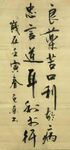 良藥苦口利於病
忠言逆耳利於行
壬寅春